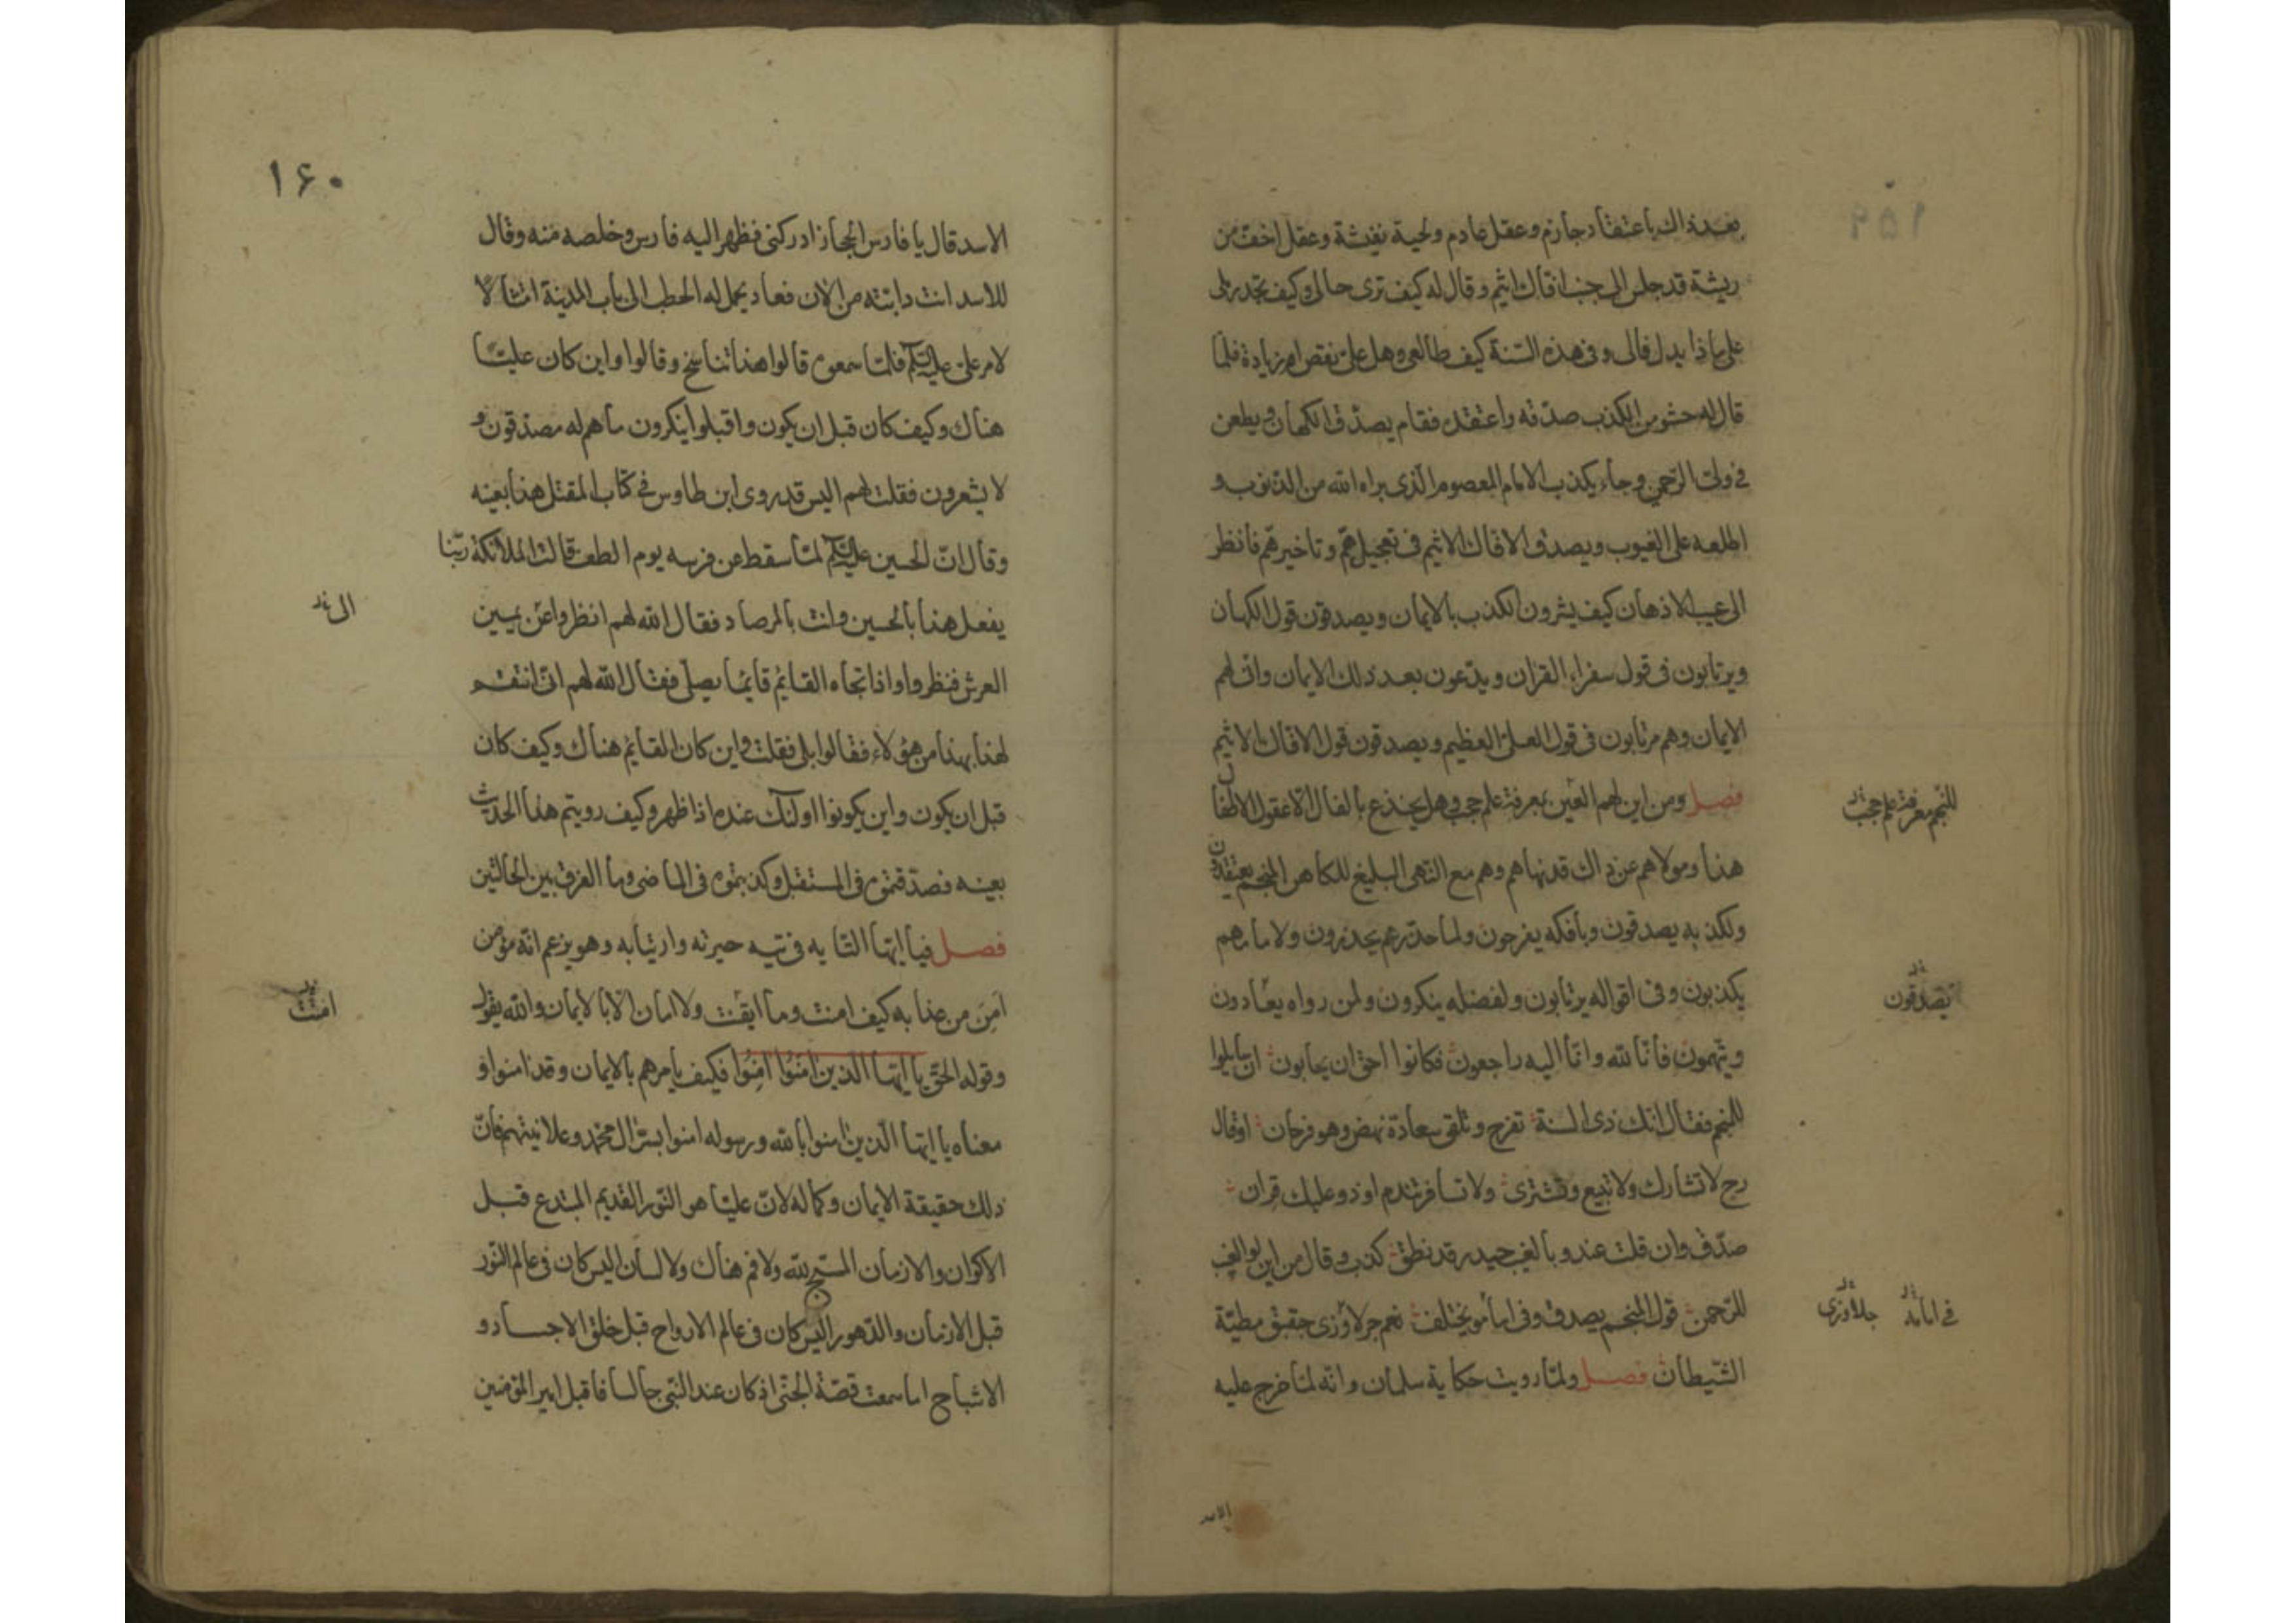 بعد ذاك باعتقاد جازم وعقل عادم ولحية نفيشة وعقل اخف من
ريشة قد جلس الى جنب افاك اثيم وقال له كيف ترى حالى وكيف تجد رملى
على ماذا يدل فالى وفى هذه السنة كيف طالعى وهل على نقص ام زيادة فلما
قال له حشو من الكذب صدقه واعتقده فقام يصدق الكهان ويطعن
فى ولى الرحمن وجاء يكذب الامام المعصوم الذى براه الله من الذنوب و
اطلعه على الغيوب ويصدق الافاك الاثيم فى تعجيل هم وتاخير هم فانظر
الى عمى الاذهان كيف يشرون الكذب بالايمان ويصدقون قول الكهان
ويرتابون فى قول سفراء القران ويدعون بعد ذلك الايمان وانى لهم
الايمان وهم مرتابون فى قول العلى العظيم ويصدقون قول الافاك الاثيم
فصل ومن اين لهم الغيب بمعرفة علم حجب وهل يخدع بالفال الا عقول الاطفال
هذا ومولاهم عن ذاك قد نهاهم وهم مع النهى البليغ للكاهن المنجم يعتقدون
ولكذبه يصدقون وبافكه يفرحون ولما حذرهم يحذرون ولامامهم
يكذبون وفى اقواله يرتابون ولفضله ينكرون ولمن رواه يعادون
ويتهمون فانا لله وانا اليه راجعون فكانوا احق ان يجابون ان مايلوا
للمنجم فقال انك ذى السنة تفرح وتلقى سعادة نهض وهو فرحان او قال
رح لا تشارك ولا تبيع وتشترى ولا تسافر تندم او ذو عليك قران
صدق وان قلت عندو بالغيب حيدر قد نطق كذب وقال من اين لو الغيب
للرحمن قول المنجم يصدق وفى امامو يختلف نعم جرلاوزى حقيق مطية
الشيطان فصل ولما رويت حكاية سلمان وانه لما خرج عليه
للمنجم معرفة علم حجب
يصدقون
فى امامه جلاوزى
الاسد
١۶٠
الاسد قال يا فارس الحجاز ادركنى فظهر اليه فارس وخلصه منه وقال
للاسد انت دابته من الان فعاد يحمل له الحطب الى باب المدينة امتثالا
لامر على عليه السلام فلما سمعوه قالوا هذا تناسخ وقالوا واين كان عليا
هناك وكيف كان قبل ان يكون واقبلوا ينكرون ما هم له مصدقون و
لا يشعرون فقلت لهم اليس قد روى ابن طاوس فى كتاب المقتل هذا بعينه
وقال ان الحسين عليه السلام لما سقط عن فرسه يوم الطف قالت الملائكة ربنا
يفعل هذا بالحسين وانت بالمرصاد فقال الله لهم انظروا عن يمين
العرش فنظروا واذا تجاه القايم قايما يصلى فقال الله لهم انى انتقم
لهذا بهذا من هؤلاء فقالوا بلى فقلت واين كان القايم هناك وكيف كان
قبل ان يكون واين يكونوا اولئك عنده اذا ظهر وكيف رويتم هذا الحديث
بعينه فصدقتموه فى المستقبل وكذبتموه فى الماضى وما الفرق بين الحالتين
فصل فيا ايها التايه فى تيه حيرته وارتيابه وهو يزعم انه مؤمن
امن من عذابه كيف امنت وما ايقنت ولا امان الا بالايمان والله يقول
وقوله الحق يا ايها الذين امنوا امنوا فكيف يامرهم بالايمان وقد امنوا و
معناه يا ايها الذين امنوا بالله ورسوله امنوا بسر ال محمد وعلانيتهم فان
ذلك حقيقة الايمان وكماله لان عليا هو النور القديم المبتدع قبل
الاكوان والازمان المسبح لله ولا فم هناك ولا لسان اليس كان فى عالم النور
قبل الازمان والدهور اليس كان فى عالم الارواح قبل خلق الاجساد و
الاشباح اما سمعت قصة الجنى اذ كان عند النبى جالسا فاقبل امير المؤمنين
الى
امنت